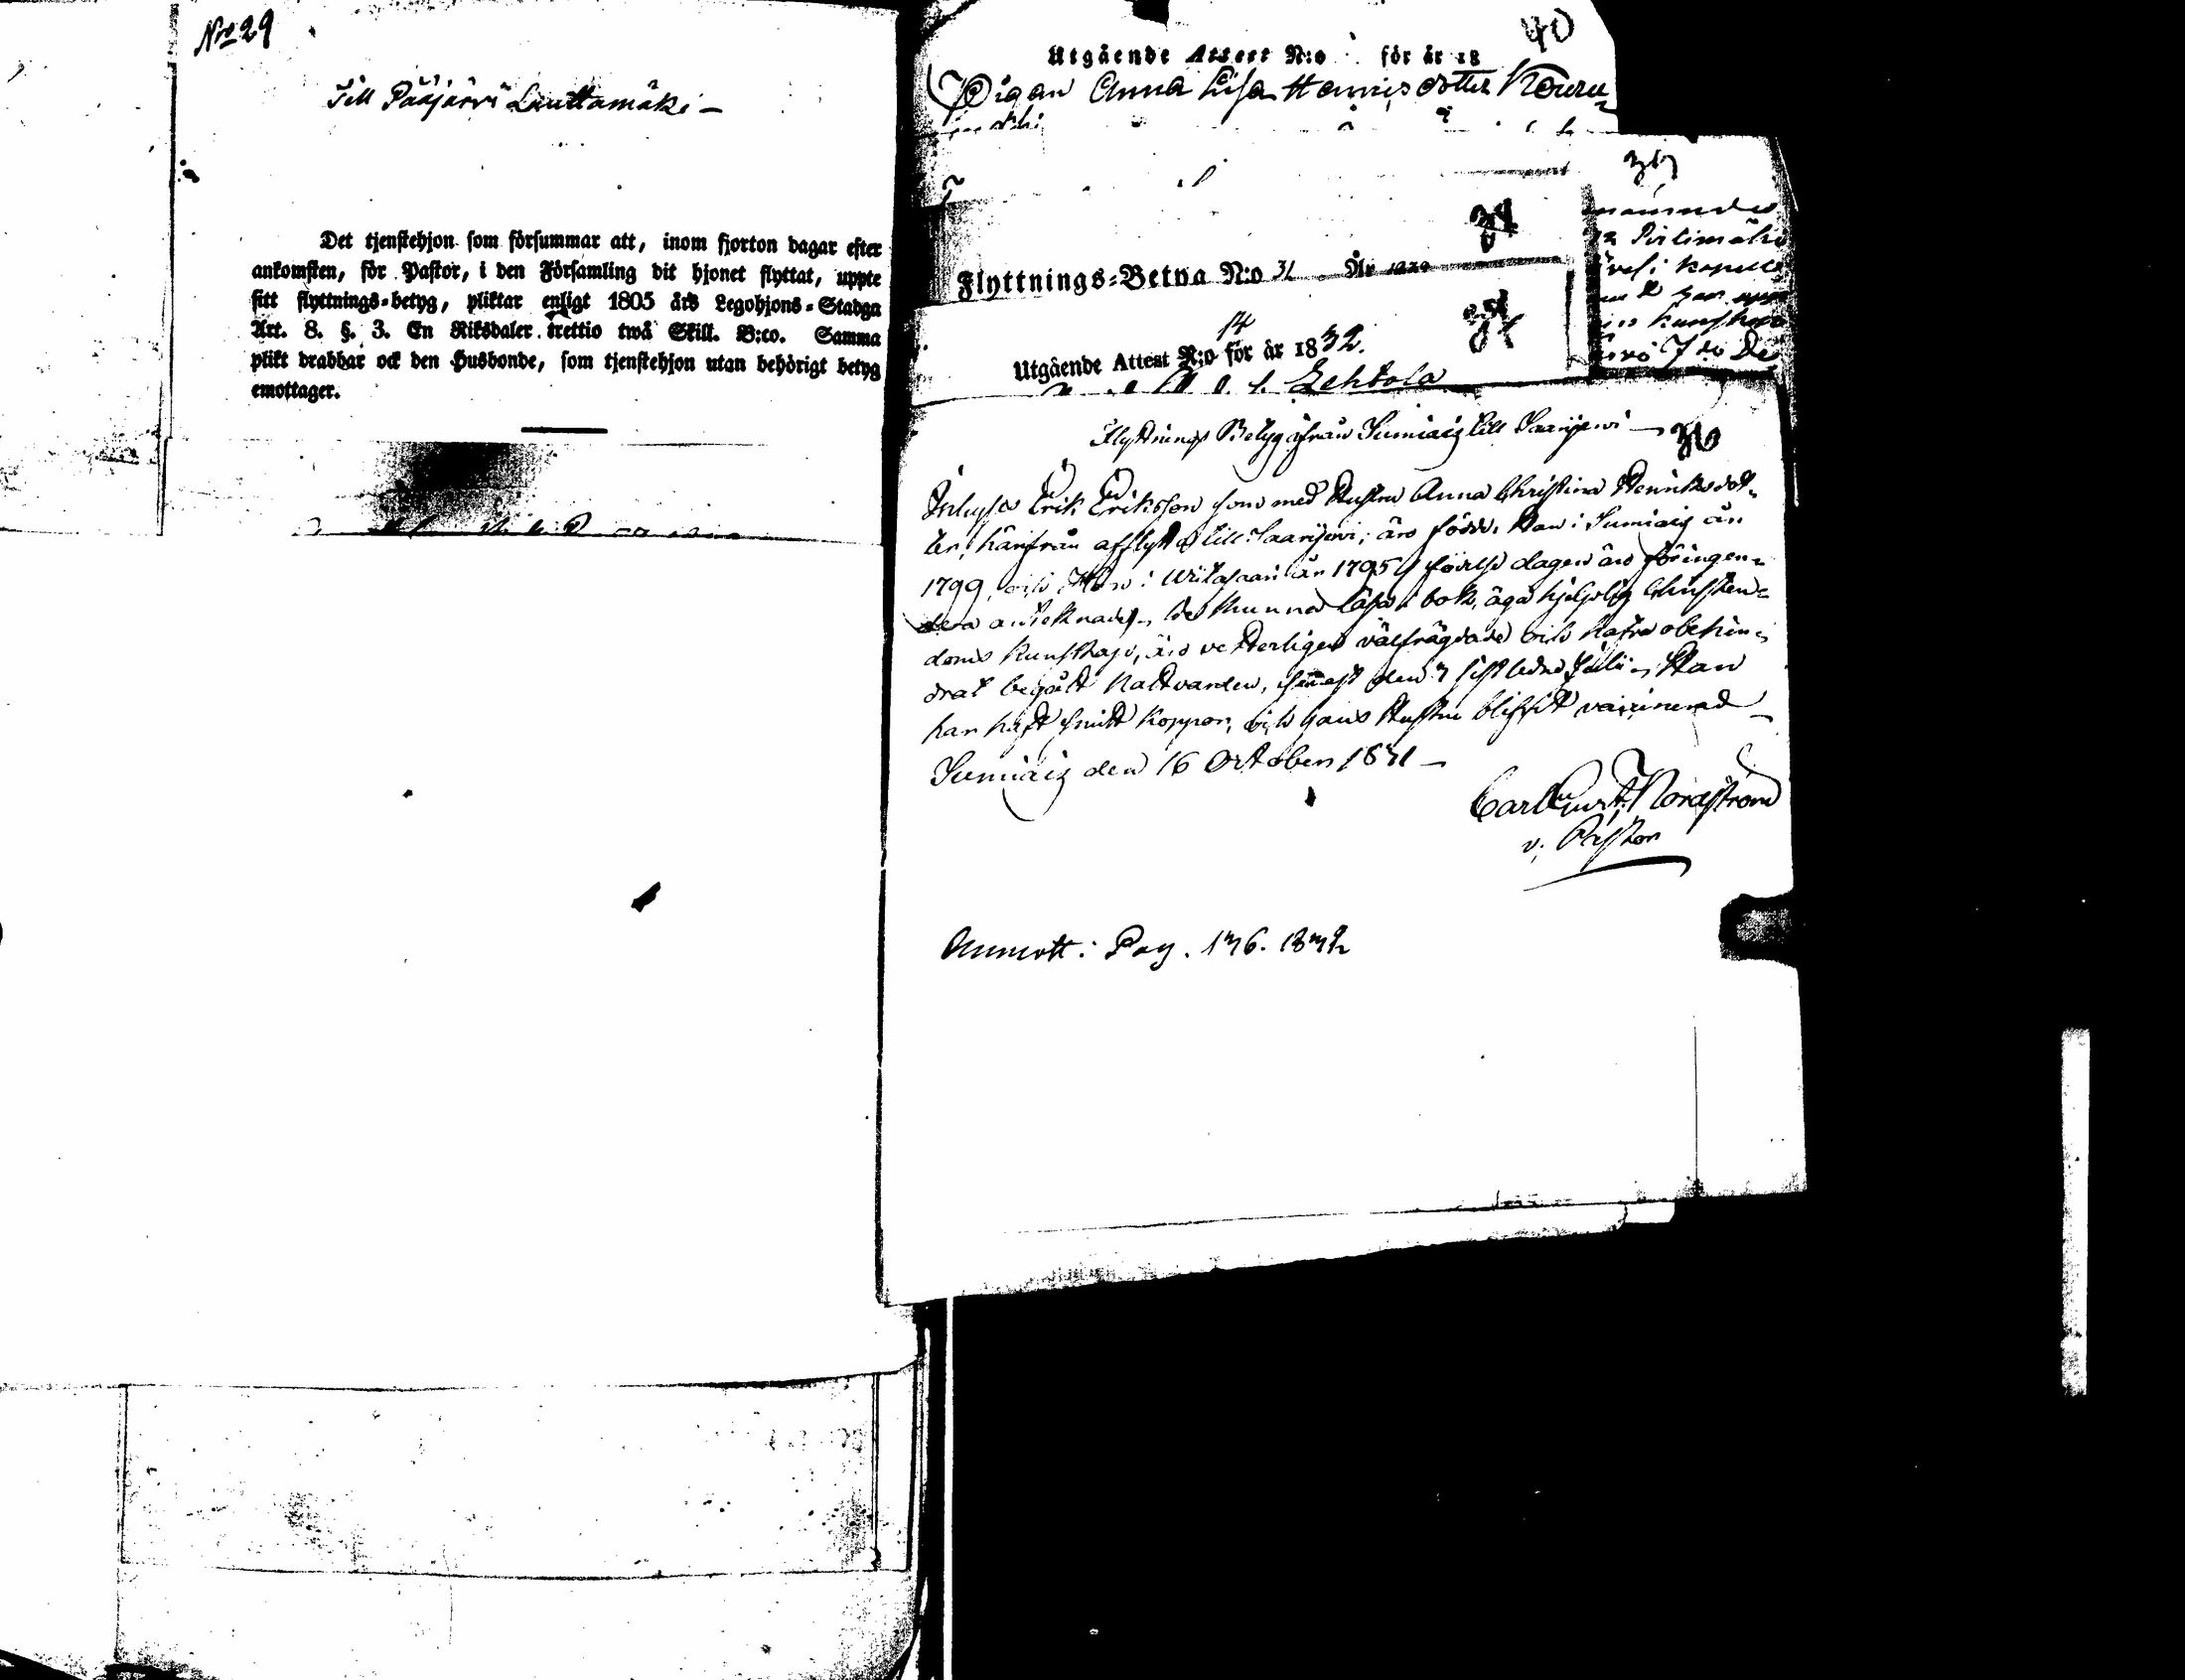 No 29
Till Pääjärvi Lauttamäki –
Det tjenstehjon som försummar att, inom fjorton dagar efter
ankomsten, för Pastor, i den Församling dit hjonet flyttat, uppte
sitt flyttnings-betyg, pliktar enligt 1805 års Legohjons-Stadga
Art. 8. §. 3. En Riksdaler trettio twå Skill. B:co. Samma
plikt drabbar ock den Husbonde, som tjenstehjon utan behörigt betyg
emottager.
40
Utgående Attest N:o för år 18
Pigan Anna Lisa Hannis dotter Kouru
Flyttnings-Betyg N:o 31 År
Utgående Attest N:o 14 för år 1832.
Lehtola
Flyttnings Betyg ifrån Sumiais till Saarijervi – 36
Inhyses Erik Eriksson som med Hustru Anna Christina Henriksdot-
ter, härifrån afflyttat till Saarijervi, äro födde, Han i Sumiais år
1799, och Hon i Witasaari år 1795, födelse dagen äro för ingen-
dera antecknade, de kunna läsa i bok, äga hjelplig Christen-
doms kunskap, äro vetterligen välfrägdade och hafva obehin-
drat begått Nattvarden, senast den 3 sistledne Julii. Han
har haft smitt koppor, och hans Hustru blifvit vaccinerad –
Sumiais den 16 October 1831 –
Carl Gust. Nordström
v. Pastor
Anmält: Pag. 136. 1832